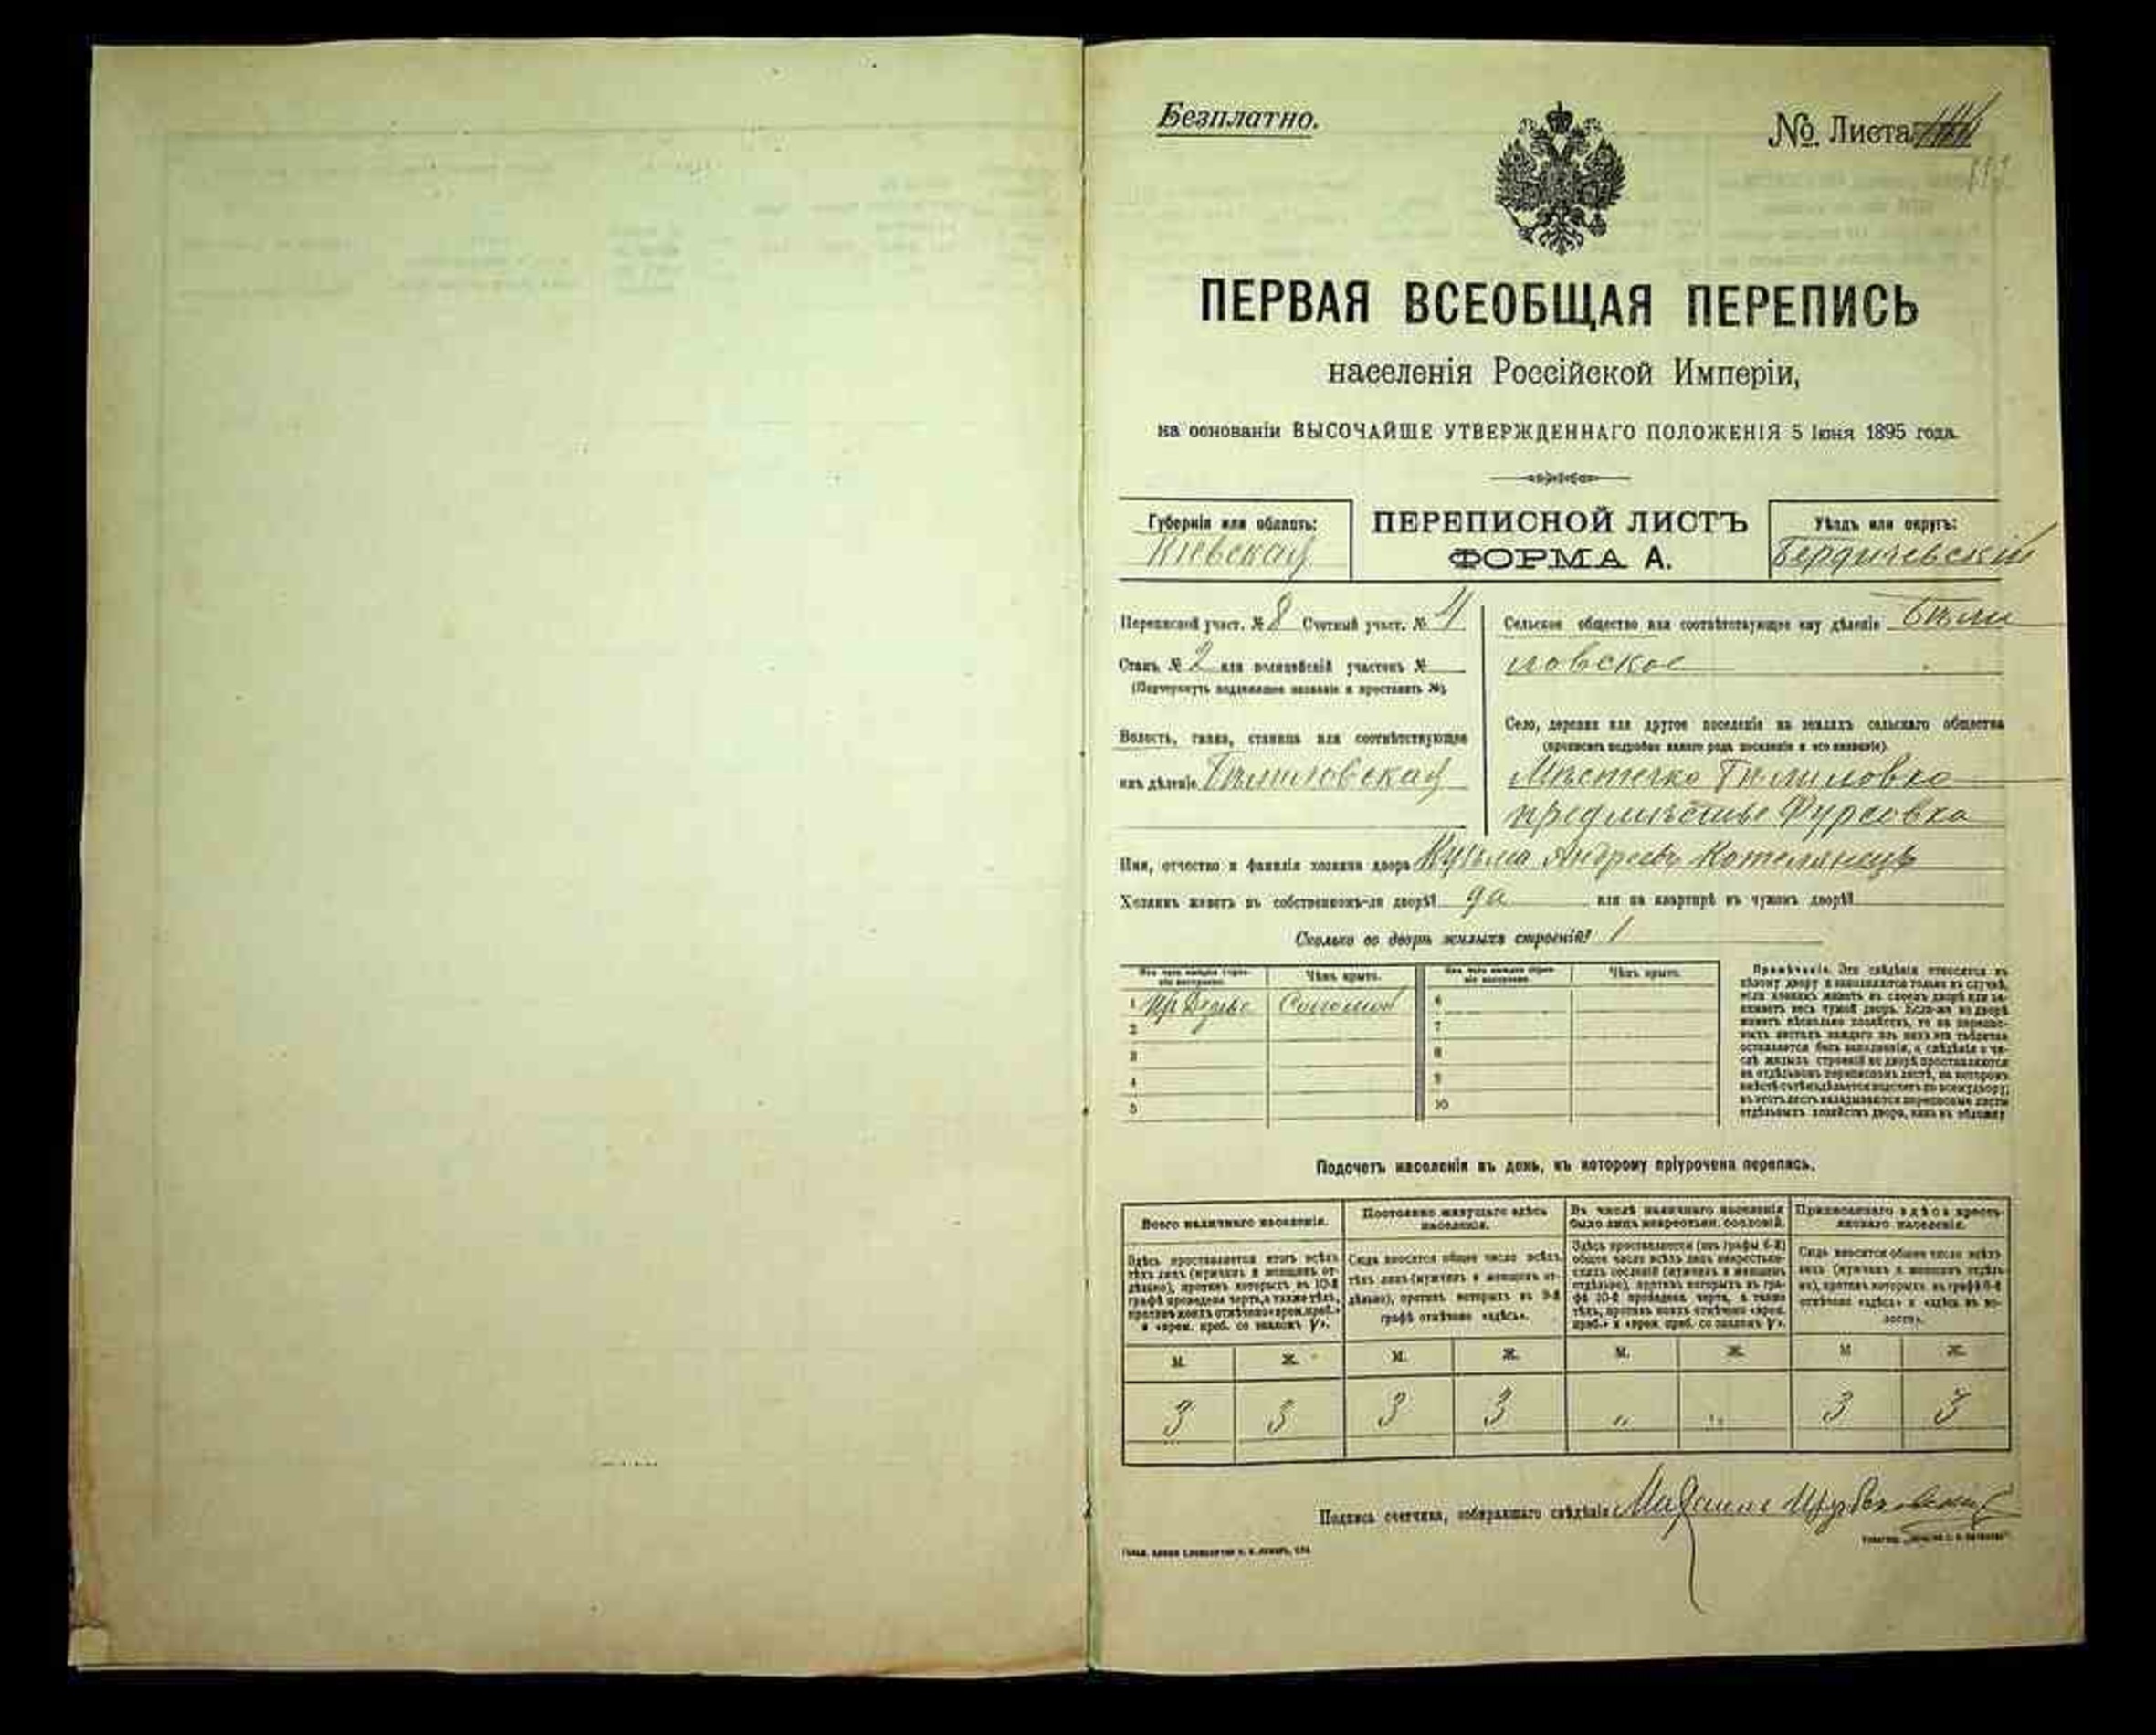 Безплатно.
№ Листа
ПЕРВАЯ ВСЕОБЩАЯ ПЕРЕПИСЬ
населенія Россійской Имперіи,
на основаніи ВЫСОЧАЙШЕ УТВЕРЖДЕННАГО ПОЛОЖЕНІЯ 5 Іюня 1895 года.
Губернія или область:
Кіевская
ПЕРЕПИСНОЙ ЛИСТЪ
ФОРМА А.
Уѣздъ или округъ:
Бердичевскій
Переписной участ. № 8 Счетный участ. № 4
Станъ № 2 или полицейскій участокъ №
(Подчеркнуть надлежащее названіе и проставить №).
Волость, гмина, станица или соотвѣтствующее
имъ дѣленіе Бѣлиловская
Сельское общество или соотвѣтствующее ему дѣленіе Бѣли
ловское
Село, деревня или другое поселеніе на земляхъ сельскаго общества
(прописать подробно какого рода поселеніе и его названіе).
Мѣстечко Бѣлиловка
предмѣстье Фурсовка
Имя, отчество и фамилія хозяина двора Кузьма Андреевъ
Хозяинъ живетъ въ собственномъ-ли дворѣ? да или на квартирѣ въ чужомъ дворѣ?
Сколько во дворѣ жилыхъ строеній? 1
Изъ чего каждое строеніе построено.
Чѣмъ крыто.
Изъ чего каждое строеніе построено.
Чѣмъ крыто.
1 Соломой
2
3
4
5
6
7
8
9
10
Примѣчаніе. Эти свѣдѣнія относятся къ
цѣлому двору и заполняются только въ случаѣ,
если хозяинъ живетъ въ своемъ дворѣ или за-
нимаетъ весь чужой дворъ. Если-же во дворѣ
живетъ нѣсколько хозяйствъ, то на перепис-
ныхъ листахъ каждаго изъ нихъ эта табличка
оставляется безъ заполненія, а свѣдѣнія о чи-
слѣ жилыхъ строеній во дворѣ проставляются
на отдѣльномъ переписномъ листѣ, на которомъ
вмѣстѣ съ тѣмъ дѣлается подсчетъ по всему двору;
въ этотъ листъ вкладываются переписные листы
отдѣльныхъ хозяйствъ двора, какъ въ обложку
Подсчетъ населенія въ день, къ которому пріурочена перепись.
Всего наличнаго населенія.
Здѣсь проставляется итогъ всѣхъ
тѣхъ лицъ (мужчинъ и женщинъ от-
дѣльно), противъ которыхъ въ 10-й
графѣ проведена черта, а также тѣхъ,
противъ коихъ отмѣчено «врем. преб.»
и «врем. преб. со знакомъ V».
Постоянно живущаго здѣсь
населенія.
Сюда вносится общее число всѣхъ
тѣхъ лицъ (мужчинъ и женщинъ от-
дѣльно), противъ которыхъ въ 9-й
графѣ отмѣчено «здѣсь».
Въ числѣ наличнаго населенія
было лицъ некрестьян. сословій.
Здѣсь проставляется (изъ графы 6-й)
общее число всѣхъ лицъ некрестьян-
скихъ сословій (мужчинъ и женщинъ
отдѣльно), противъ которыхъ въ гра-
фѣ 10-й проведена черта, а также
тѣхъ, противъ коихъ отмѣчено «врем.
преб.» и «врем. преб. со знакомъ V».
Приписаннаго здѣсь кресть-
янскаго населенія.
Сюда вносится общее число всѣхъ
лицъ (мужчинъ и женщинъ отдѣль-
но), противъ которыхъ въ графѣ 8-й
отмѣчено «здѣсь» и «здѣсь въ во-
лости».
М. Ж. М. Ж. М. Ж. М Ж.
3 3 3 3 „ „ 3 3
Подпись счетчика, собиравшаго свѣдѣнія